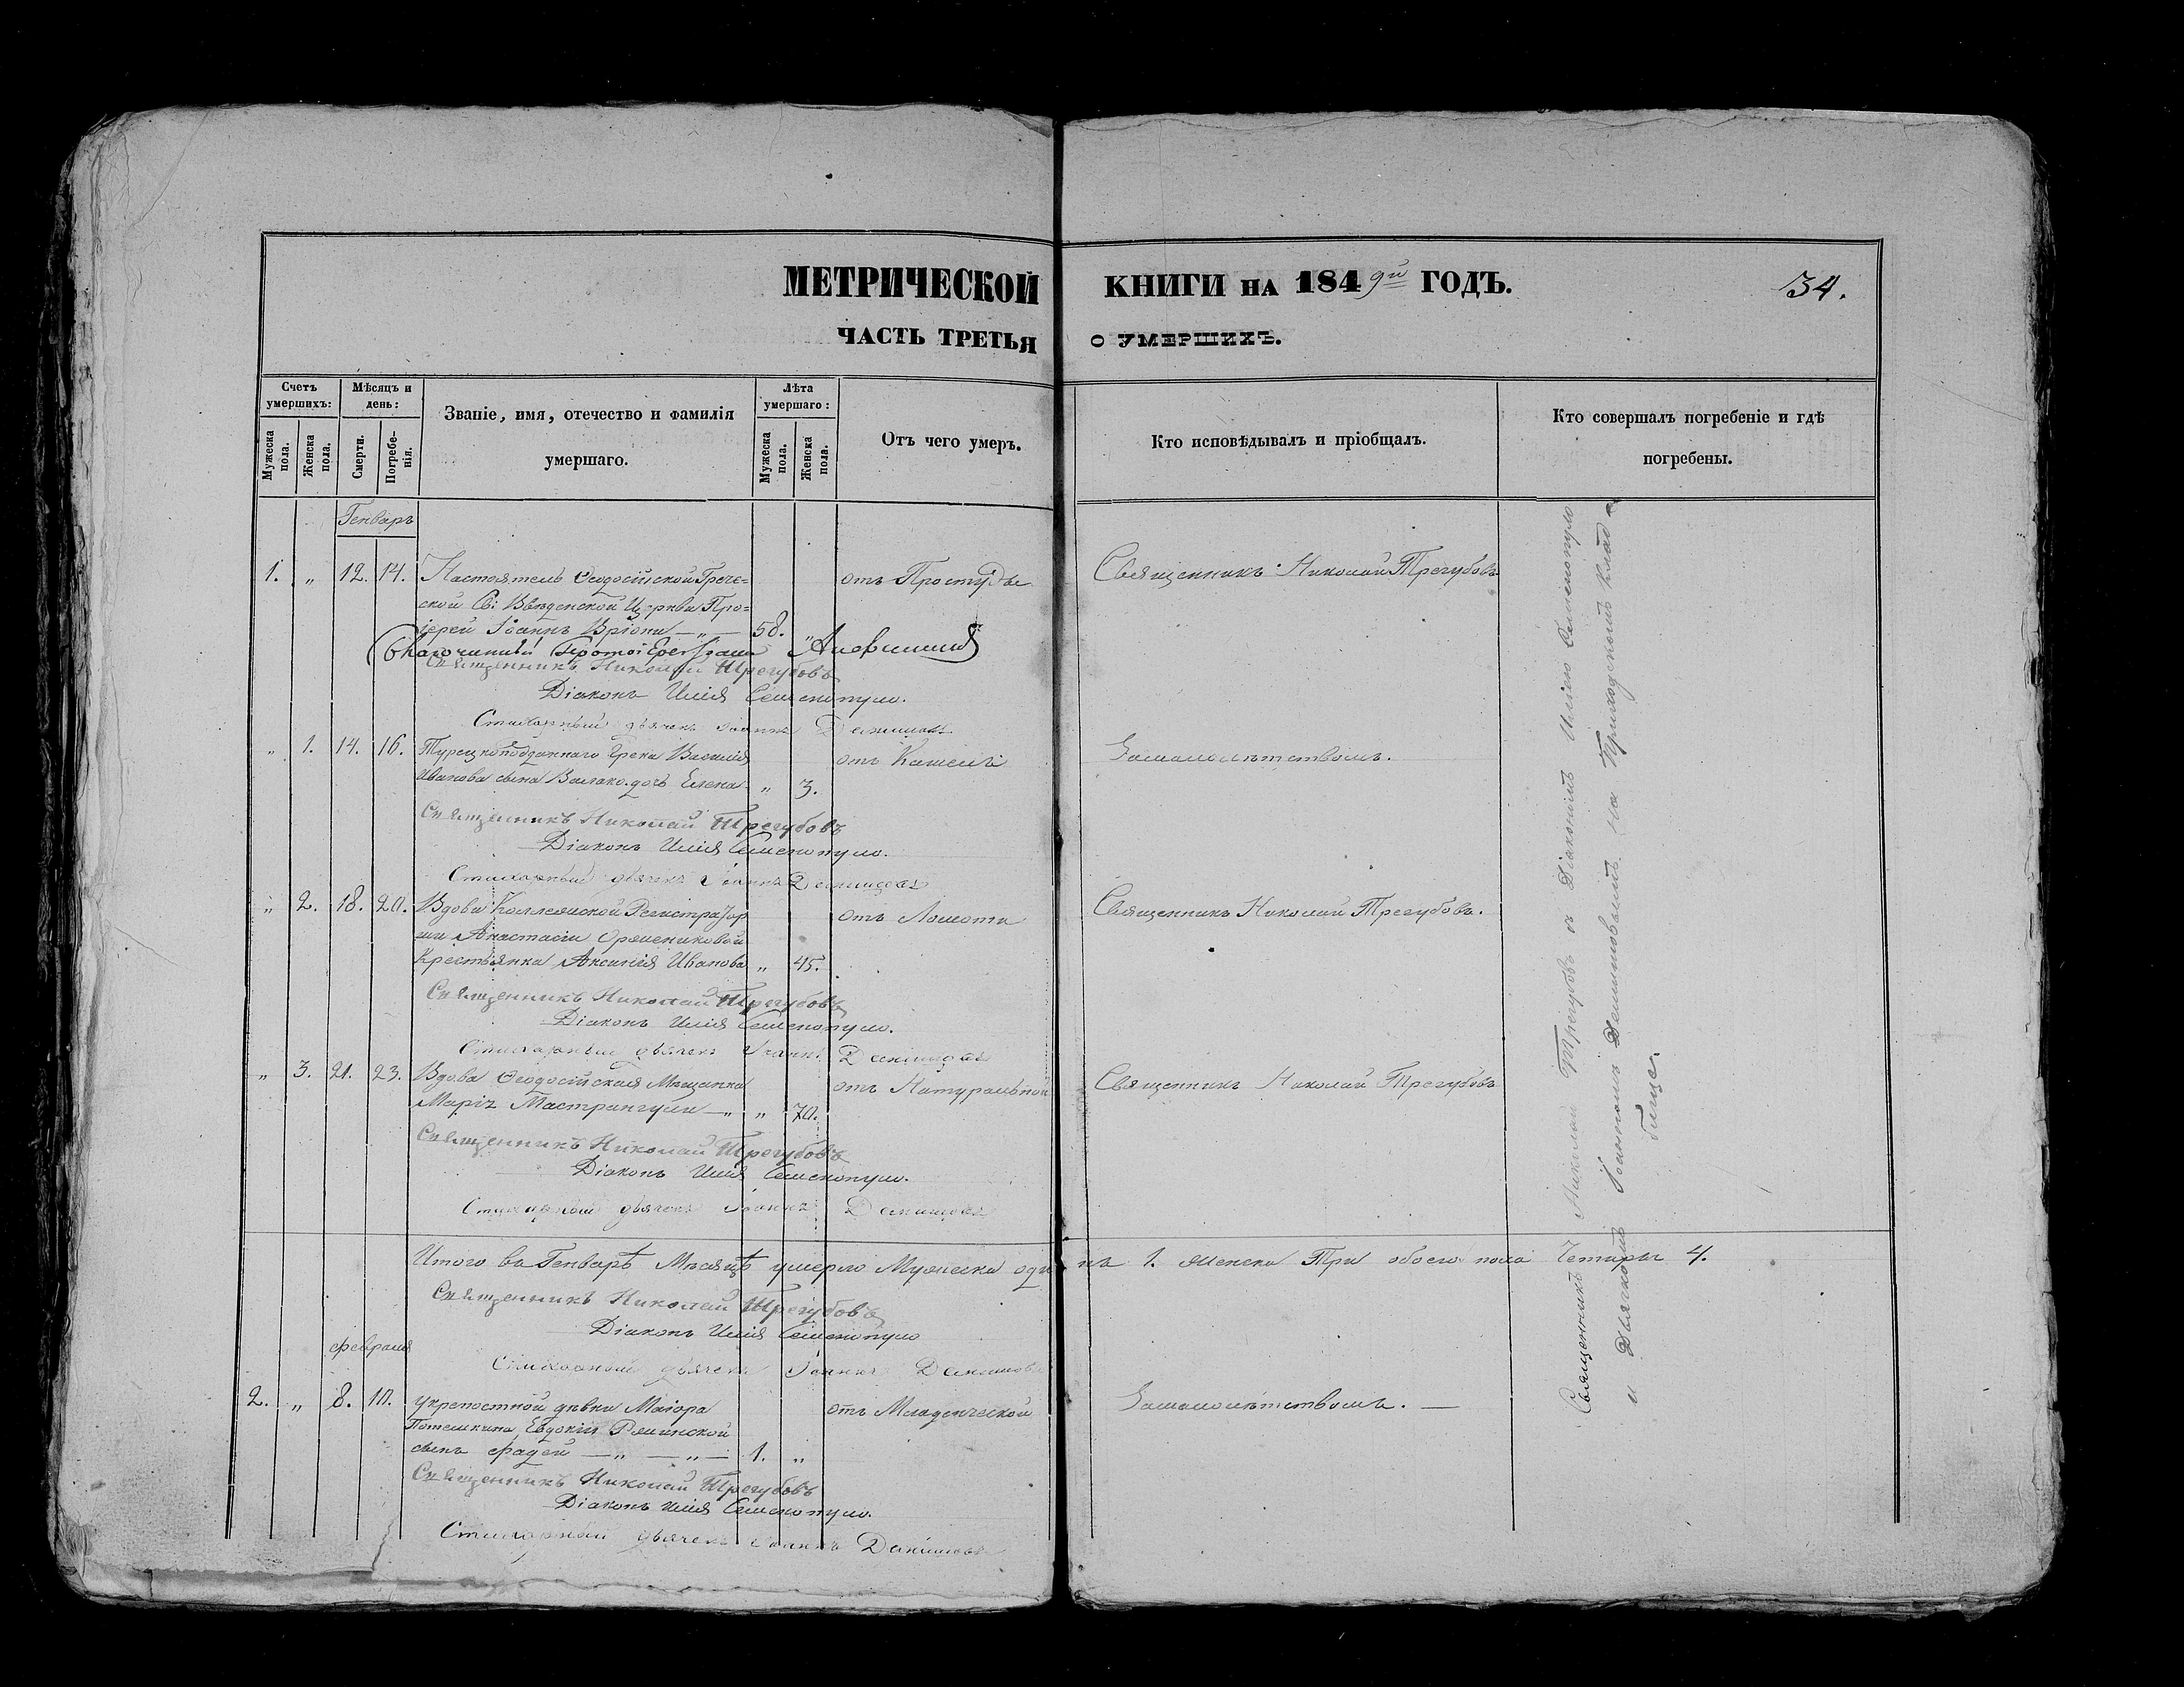 МЕТРИЧЕСКОЙ КНИГИ НА 1849й ГОДЪ.
34.
ЧАСТЬ ТРЕТЬЯ О УМЕРШИХЪ.
Счетъ умершихъ:
Мужеска пола.
Женска пола.
Мѣсяцъ и день:
Смерти.
Погребенія.
Званіе, имя, отечество и фамилія
умершаго.
Лѣта умершаго:
Мужеска пола.
Женска пола.
Отъ чего умеръ.
Кто исповѣдывалъ и пріобщалъ.
Кто совершалъ погребеніе и гдѣ
погребены.
Генваръ
1. „ 12. 14. Настоятель Ѳеодосійской Грече= отъ Простуды Священникъ Николай Трегубовъ
ской Св: Введенской Церкви Про=
іерей Іоаннъ Вріони —„— 58. „
Благочинный Протоіерей
Священникъ Николай Трегубовъ
Діаконъ Илія Семенопуло.
Стихарный дьячекъ Іоаннъ Данимовъ
„ 1. 14. 16. Турецкоподданнаго Грека Василія отъ Кашеля Замалолѣтствомъ.
Иванова сына дочь Елена „ 3.
Священникъ Николай Трегубовъ
Діаконъ Илія Семенопуло.
Стихарный дьячекъ Іоаннъ Данимовъ
„ 2. 18. 20. Вдовы Коллежской Регистратор отъ Ломоты Священникъ Николай Трегубовъ.
ши Анастасіи
Крестьянка Аксинія Иванова „ 45.
Священникъ Николай Трегубовъ
Діаконъ Илія Семенопуло.
Стихарный дьячекъ Іоаннъ Данимовъ
„ 3. 21. 23. Вдова Ѳеодосійская Мѣщанка отъ Натуральной Священникъ Николай Трегубовъ
Марія Мастрангули —„ „ 70.
Священникъ Николай Трегубовъ
Діаконъ Илія Семенопуло.
Стихарный дьячекъ Іоаннъ Данимовъ
Итого въ Генварѣ Мѣсяцѣ умерло Мужеска одинъ 1. женска Три обоего пола Четыри 4.
Священникъ Николай Трегубовъ
Діаконъ Илія Семенопуло
февраля
Стихарный дьячекъ Іоаннъ Данимовъ
2. „ 8. 10. укрепостной дѣвки Маіора отъ Младенческой Замалолѣтствомъ. —
Потемкина Евдокіи
сынъ Фадей —„— —„— 1. „
Священникъ Николай Трегубовъ
Діаконъ Илія Семенопуло.
Стихарный дьячекъ Іоаннъ Данимовъ
Священникъ Николай Трегубовъ съ Діакономъ Иліею Семенопуло
и Дьячкомъ Іоанномъ Данимовымъ на Приходскомъ Клад=
бище.